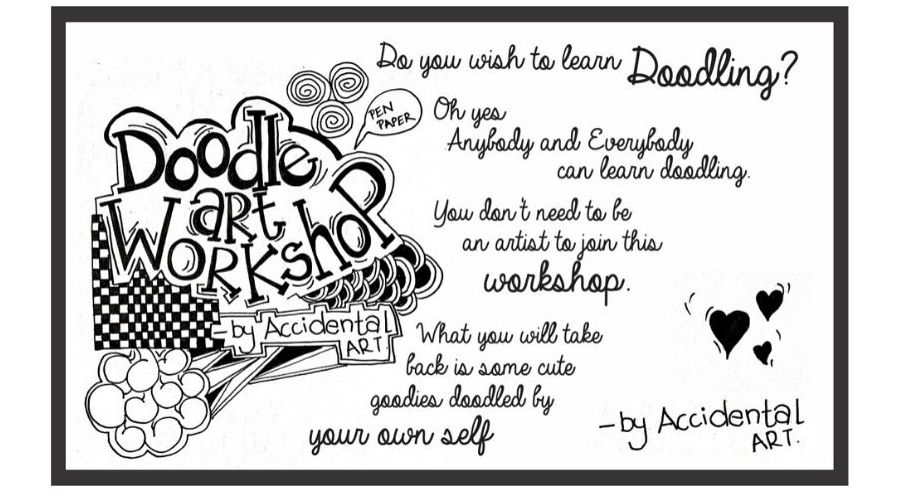 Doodle
art
Workshop
- by Accidental
ART
PEN
PAPER
Do you wish to learn Doodling?
Oh yes
Anybody and Everybody
can learn doodling.
You don't need to be
an artist to join this
workshop.
What you will take
back is some cute
goodies doodled by
your own self
- by Accidental
ART.